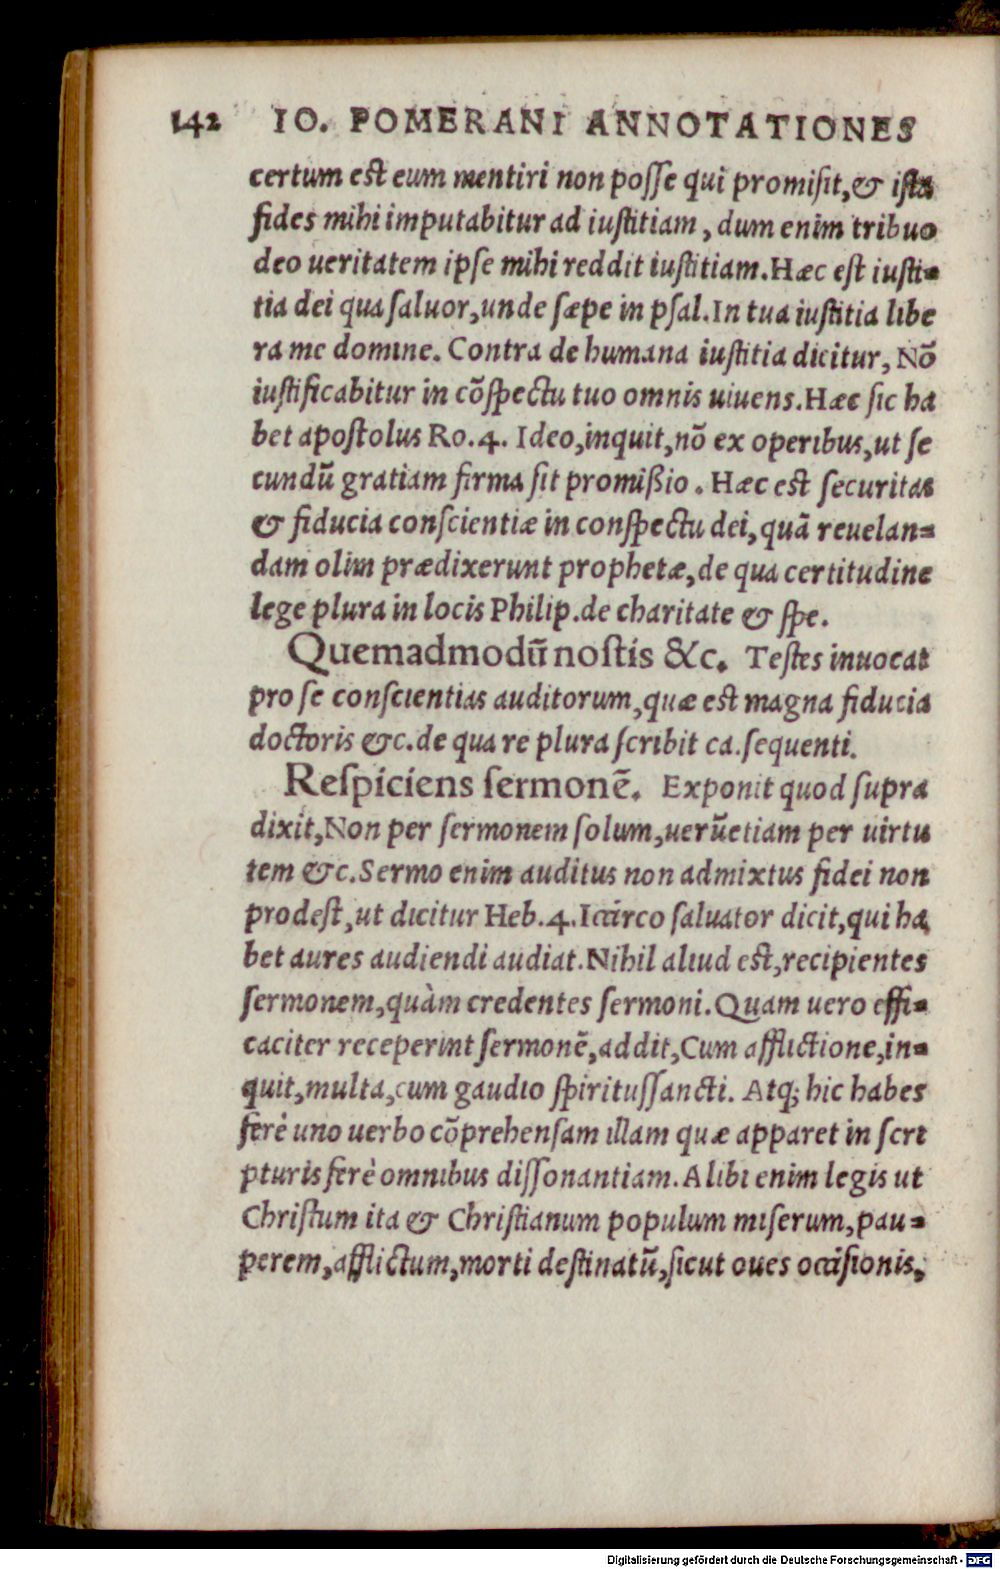 142 IO. POMERANI ANNOTATIONES
certum est eum mentiri non posse qui promisit,& ista
fides mihi imputabitur ad iustitiam, dum enim tribuo
deo ueritatem ipse mihi reddit iustitiam.Hæc est iusti=
tia dei qua saluor,unde sæpe in psal.In tua iustitia libe
ra me domine. Contra de humana iustitia dicitur, Nõ
iustificabitur in cõspectu tuo omnis uiuens.Hæc sic ha
bet apostolus Ro.4. Ideo,inquit,nõ ex operibus,ut se
cundũ gratiam firma sit promißio. Hæc est securitas
& fiducia conscientiæ in conspectu dei,quã reuelan=
dam olim prædixerunt prophetæ,de qua certitudine
lege plura in locis Philip.de charitate & spe.
Quemadmodũ nostis &c. Testes inuocat
pro se conscientias auditorum,quæ est magna fiducia
doctoris &c.de qua re plura scribit ca.sequenti.
Respiciens sermonẽ. Exponit quod supra
dixit,Non per sermonem solum,uerũetiam per uirtu
tem &c.Sermo enim auditus non admixtus fidei non
prodest,ut dicitur Heb.4.Icirco saluator dicit,qui ha
bet aures audiendi audiat.Nihil aliud est,recipientes
sermonem,quàm credentes sermoni.Quam uero effi=
caciter receperint sermonẽ,addit,Cum afflictione,in=
quit,multa,cum gaudio spiritussancti. Atq; hic habes
ferè uno uerbo cõprehensam illam quæ apparet in scri
pturis ferè omnibus dissonantiam.Alibi enim legis ut
Christum ita & Christianum populum miserum,pau=
perem,afflictum,morti destinatũ,sicut oues occisionis,
Digitalisierung gefördert durch die Deutsche Forschungsgemeinschaft - DFG